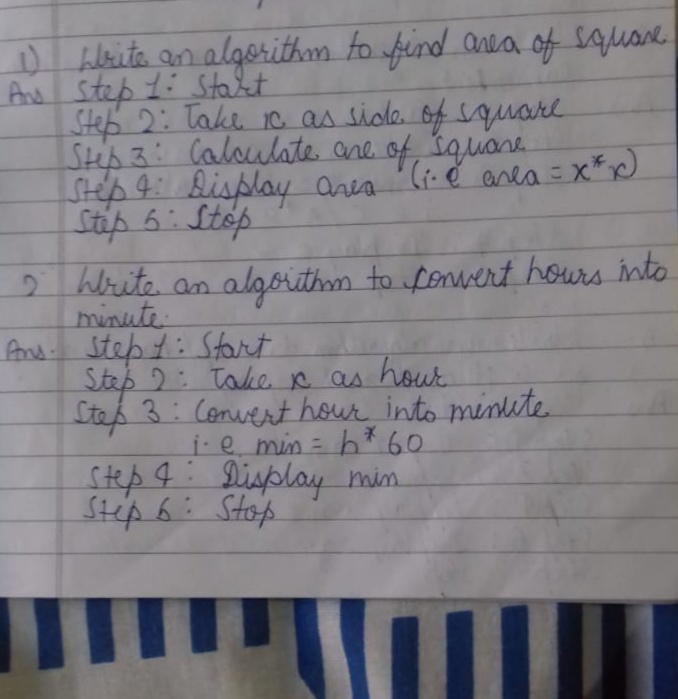 1) Write an algorithm to find area of square
Ans Step 1: Start
Step 2: Take x as side of square
Step 3: Calculate are of square
(i.e area = x*x)
Step 4: Display area
Step 5: Stop
2 Write an algorithm to convert hours into
minute.
Ans. Step 1: Start
Step 2: Take x as hour
Step 3: Convert hour into minute
i.e min = h*60
Step 4: Display min
Step 5: Stop